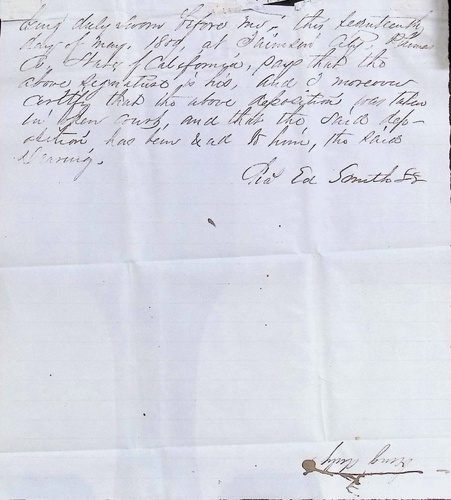 being duly sworn before me, this seventeenth
day of may, 1859, at Jamison City, Plumas
Co. State of California, says that the
above signature is his, and I moreover
certify that the above deposition was taken
in open court, and that the said dep-
osition has been read to him, the said
Hearing.
Chas Ed Smith